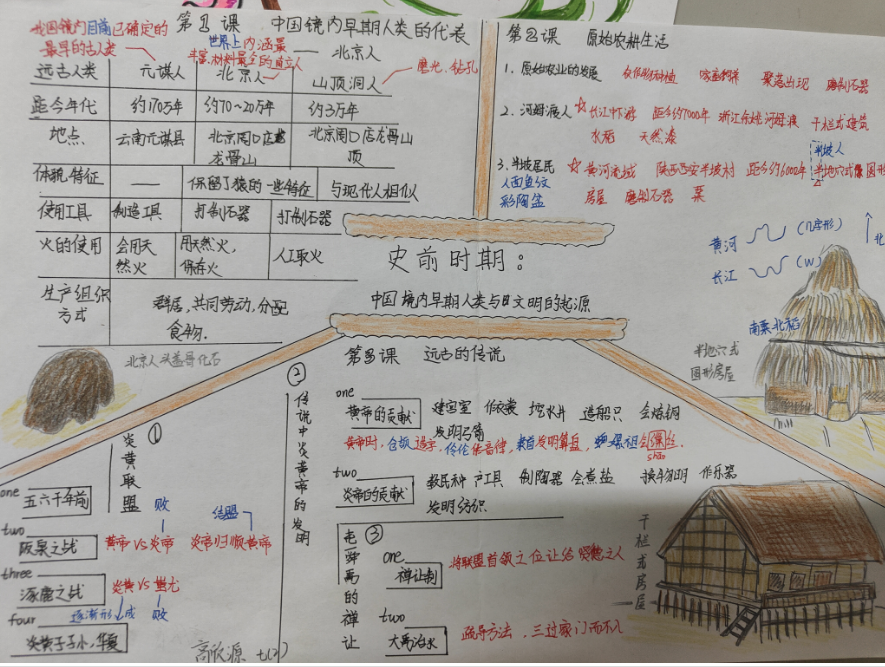 第1课 中国镜内早期人类的代表
我国镜内目前已确定的
最早的古人类
世界上内涵最
丰富,材料最全的直立人
北京人
远古人类 元谋人 北京人 山顶洞人
磨光、钻孔
距今年代 约170万年 约70~20万年 约3万年
地点 云南元谋县 北京周口店
龙骨山 北京周口店龙骨山
顶
体貌特征 — 保留了猿的一些特征 与现代人相似
使用工具 制造工具 打制石器 打制石器
火的使用 会用天
然火 用天然火,
保存火 人工取火
生产组织
方式 群居,共同劳动,分配
食物.
北京人头盖骨化石
第2课 原始农耕生活
1、原始农业的发展 农作物种植 家畜饲养 聚落出现 磨制石器
2、河姆渡人 ☆长江下游 距今约7000年 浙江余姚河姆渡 干栏式建筑
水稻 天然漆
半坡人
3、半坡居民 ☆黄河流域 陕西西安半坡村 距今约6000年 半地穴式 圆形
人面鱼纹
彩陶盆
房屋 磨制石器 粟
黄河 (几字形)
北
长江 (W)
南粟北稻
半地穴式
圆形房屋
史前时期:
中国境内早期人类与文明的起源
第3课 远古的传说
① 炎黄联盟
one 五六千年前
two 阪泉之战 黄帝 VS 炎帝 炎帝归顺黄帝
败 结盟
three 涿鹿之战 炎黄 VS 蚩尤
逐渐形成 败
four 炎黄子孙,华夏
② 传说中炎黄帝的发明
one 黄帝的贡献 建宫室 作衣裳 挖水井 造船只 会炼铜
发明弓箭
黄帝时,仓颉造字,伶伦作音律,隶首发明算盘,嫘祖会缫丝.
sāo
two 炎帝的贡献 教民种 产工具 制陶器 会煮盐 作乐器
发明纺织
③ 尧舜禹的禅让
one 禅让制 将联盟首领之位让给贤德之人
two 大禹治水 疏导方法,三过家门而不入
干栏式房屋
高欣源